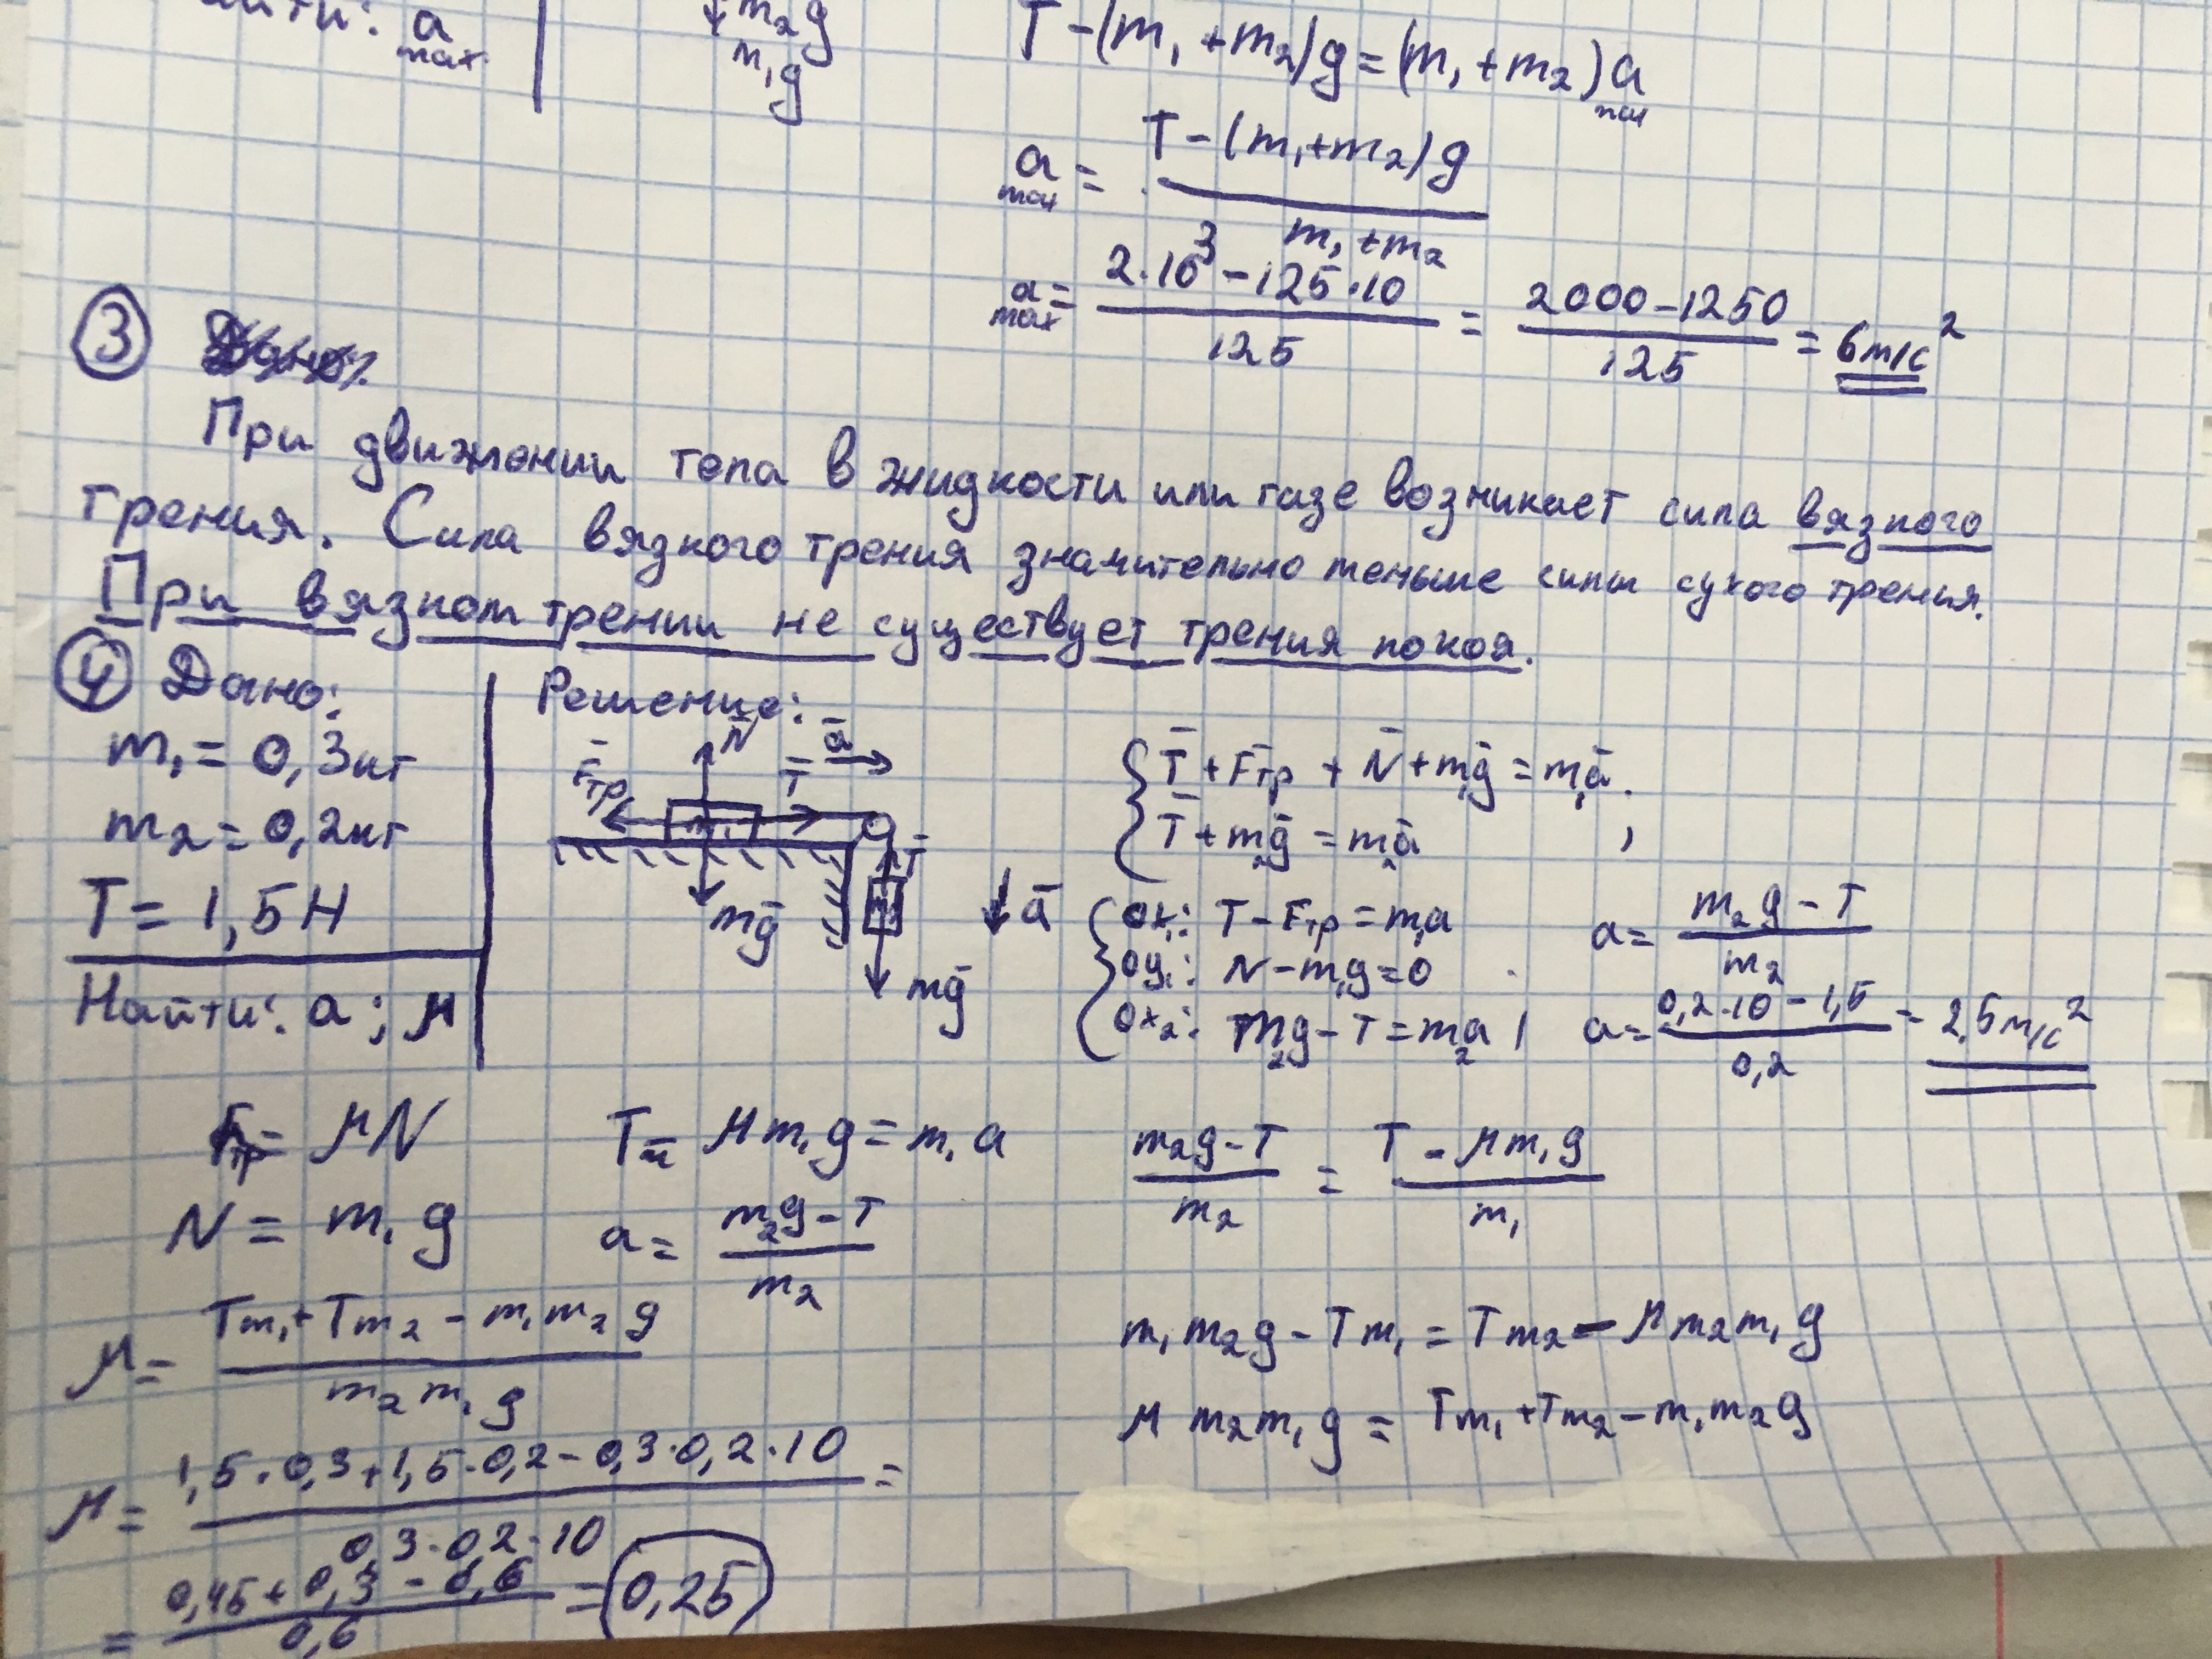 айти: a max
m₂g
m₁g
T-(m₁+m₂)g=(m₁+m₂)a max
a max = T-(m₁+m₂)g / m₁+m₂
a max = 2·10³-125·10 / 125 = 2000-1250 / 125 = 6м/с²
③
При движении тела в жидкости или газе возникает сила вязкого
трения. Сила вязкого трения значительно меньше силы сухого трения.
При вязком трении не существует трения покоя.
④ Дано:
m₁=0,3кг
m₂=0,2кг
T=1,5Н
Найти: a; μ
Решение:
N̄
ā
F̄тр
T̄
m₁
T̄
mḡ
ā
mḡ
T̄+F̄тр+N̄+m₁ḡ=m₁ā,
T̄+m₂ḡ=m₂ā ,
ox₁: T-Fтр=m₁a
oy₁: N-m₁g=0
ox₂: m₂g-T=m₂a
a= m₂g-T / m₂
a= 0,2·10-1,5 / 0,2 = 2,5м/с²
Fтр= μN
N= m₁g
T- μm₁g=m₁a
a= m₂g-T / m₂
m₂g-T / m₂ = T-μm₁g / m₁
m₁m₂g-Tm₁=Tm₂-μm₂m₁g
μm₂m₁g=Tm₁+Tm₂-m₁m₂g
μ= Tm₁+Tm₂-m₁m₂g / m₂m₁g
μ= 1,5·0,3+1,5·0,2-0,3·0,2·10 / 0,3·0,2·10 =
= 0,45+0,3-0,6 / 0,6 = 0,25